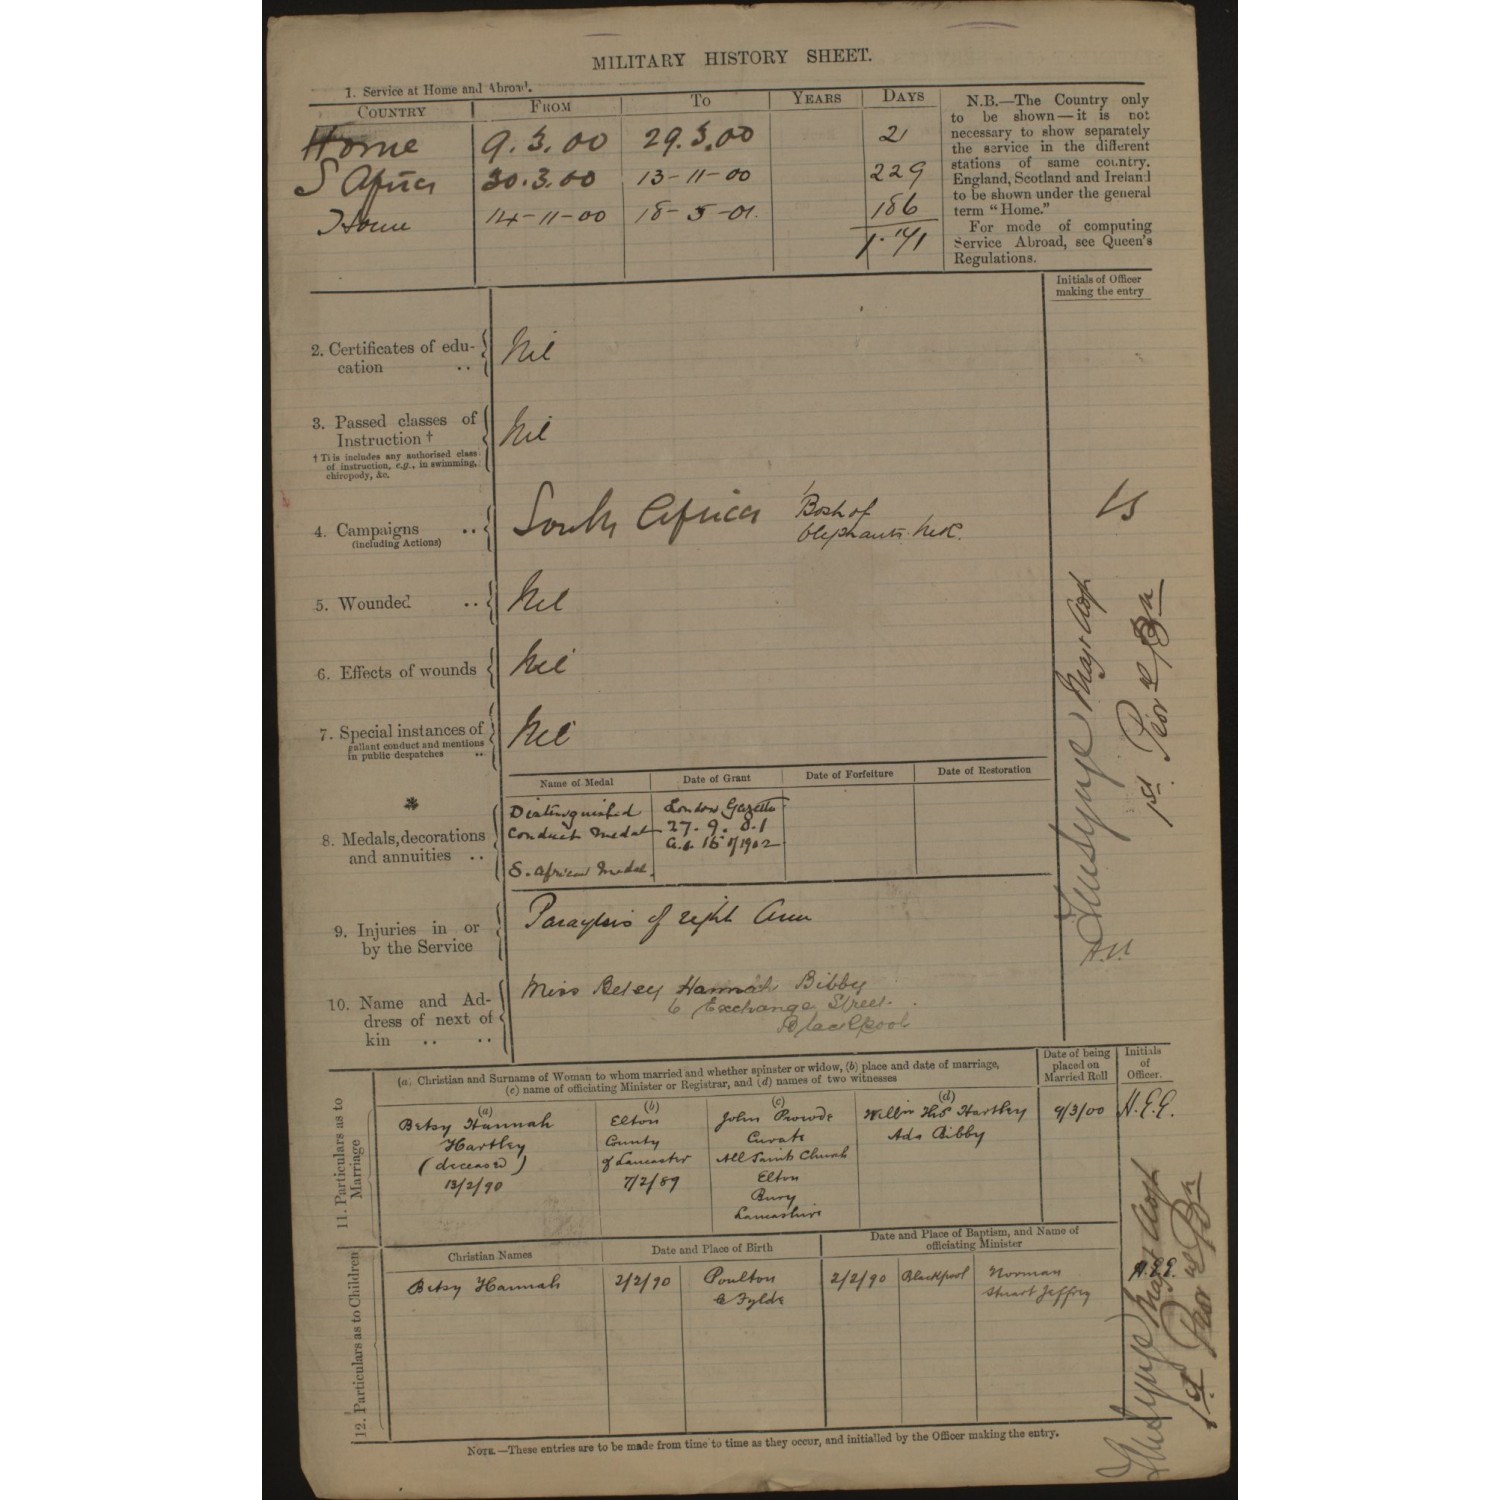 MILITARY HISTORY SHEET.
1. Service at Home and Abroad.
COUNTRY FROM TO YEARS DAYS
Home 9.3.00 29.3.00 21
S Africa 30.3.00 13-11-00 229
Home 14-11-00 18-5-01. 186
N.B.—The Country only
to be shown—it is not
necessary to show separately
the service in the different
stations of same country.
England, Scotland and Ireland
to be shown under the general
term "Home."
For mode of computing
Service Abroad, see Queen's
Regulations.
Initials of Officer
making the entry
2. Certificates of edu-
cation ..
Nil
3. Passed classes of
Instruction †
† This includes any authorised class
of instruction, e.g., in swimming,
chiropody, &c.
Nil
4. Campaigns ..
(including Actions)
South Africa Boshof
Olephants Nek.
5. Wounded ..
Nil
6. Effects of wounds
Nil
7. Special instances of
gallant conduct and mentions
in public despatches ..
Nil
Name of Medal Date of Grant Date of Forfeiture Date of Restoration
*
8. Medals, decorations
and annuities ..
Distinguished London Gazette
Conduct Medal 27.9.01
S. African Medal.
9. Injuries in or
by the Service
Paraylsis of right Arm
10. Name and Ad-
dress of next of
kin .. ..
Miss Betsy Hannah Bibby
6 Exchange Street.
Blackpool
Major
11. Particulars as to
Marriage
(a. Christian and Surname of Woman to whom married and whether spinster or widow, (b) place and date of marriage,
(c) name of officiating Minister or Registrar, and (d) names of two witnesses
Date of being
placed on
Married Roll
Initials
of
Officer.
(a)
Betsy Hannah
Hartley
(deceased)
13/2/90
(b)
Elton
County
of Lancaster
7/2/89
(c)
John Prowde
Curate
All Saints Church
Elton
Bury
Lancashire
(d)
Willm Hy Hartley
Ada Bibby
9/3/00
H.E.E.
12. Particulars as to Children
Christian Names Date and Place of Birth
Date and Place of Baptism, and Name of
officiating Minister
Betsy Hannah 2/2/90 Poulton 2/2/90 Blackpool Norman
le Fylde Stuart Jeffrey
H.E.E.
Major
NOTE.—These entries are to be made from time to time as they occur, and initialled by the Officer making the entry.